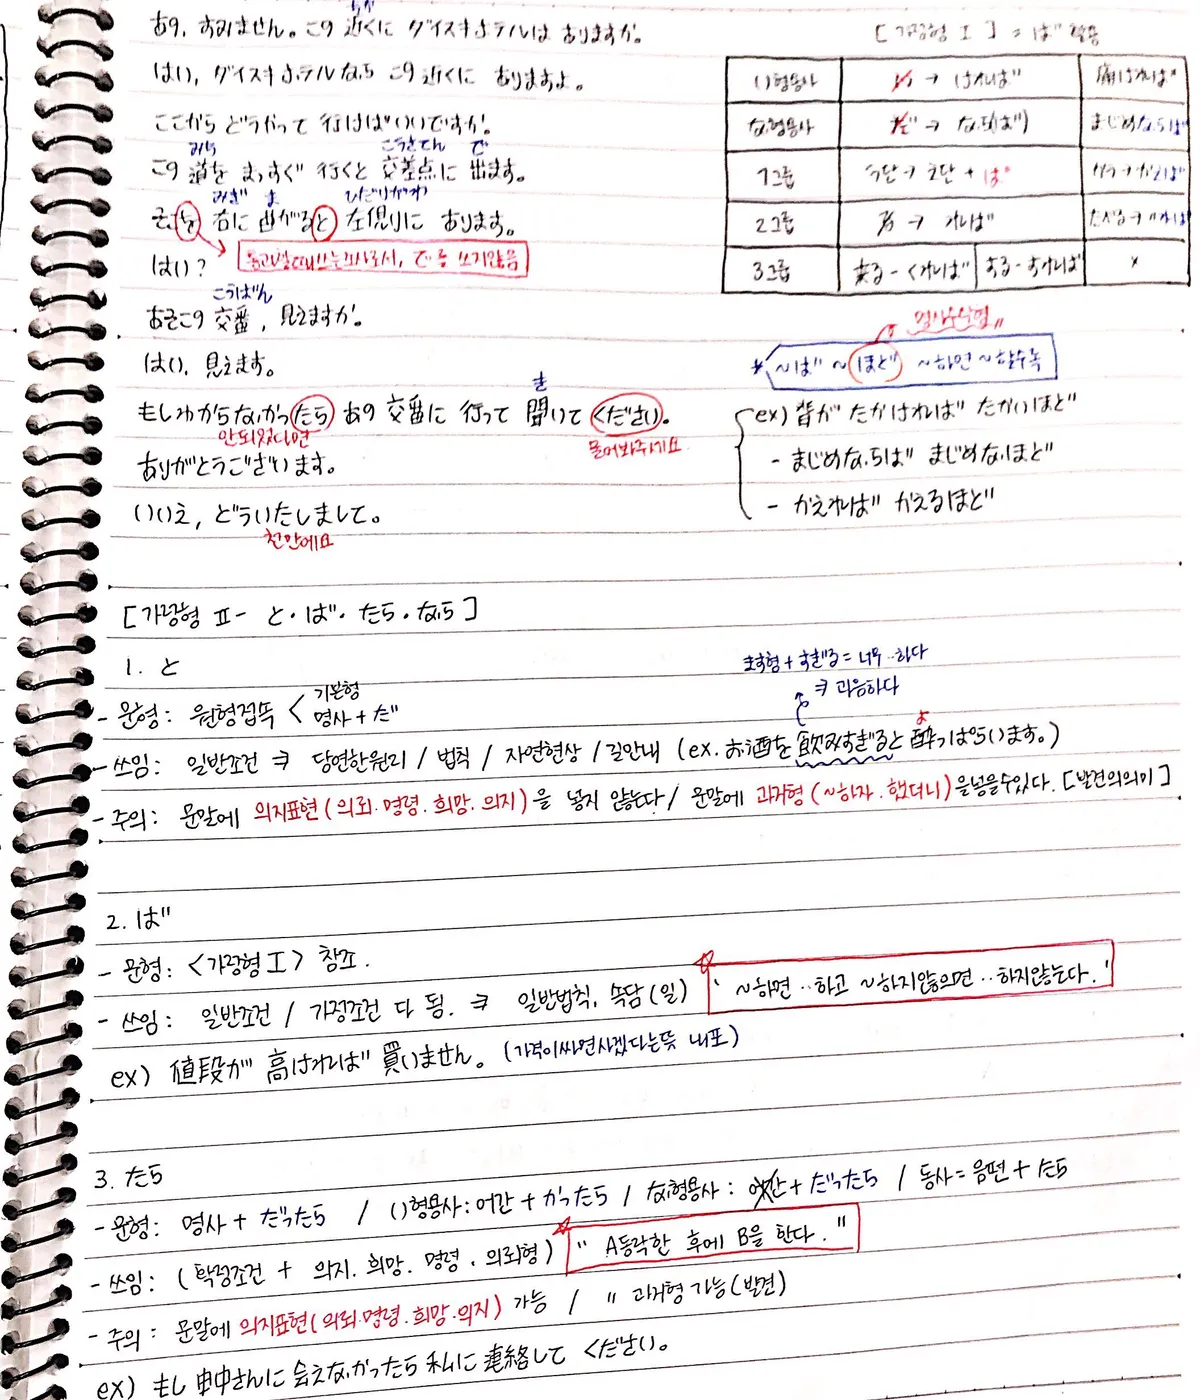 あの、すみません。この近くに ダイスキホテルは ありますか。
ちか
はい, ダイスキホテルなら この近くに ありますよ。
ここから どうやって 行けば いいですか。
みち こうさてん で
この 道を まっすぐ 行くと 交差点に 出ます。
みぎ ま ひだりがわ
そこを 右に 曲がると 左側りに あります。
はい?
こうばん
あそこの 交番, 見えますか。
はい, 見えます。
き
もしわからなかったら あの 交番に 行って 聞いて ください。
안되었다면 물어봐주세요
ありがとうございます。
いいえ, どういたしまして。
천만에요
[가정형 I] = ば 활용
い형용사 い → ければ 痛ければ
な형용사 だ → なら(ば) まじめならば
1그룹 う단 → え단 + ば
2그룹 る → れば たべる→〃れば
3그룹 来る-くれば する-すれば ×
* ~ば ~ ほど ~하면 ~할수록
ex) 背が たかければ たかいほど
- まじめならば まじめなほど
- かえれば かえるほど
[가정형 II - と・ば・たら・なら]
1. と
ます형 + すぎる = 너무 ‥하다
ヨ 과음하다
- 문형: 원형접속 < 기본형
명사 + だ
- 쓰임: 일반조건 ヨ 당연한원리 / 법칙 / 자연현상 / 길안내 (ex. お酒を 飲みすぎると 酔っぱらいます。)
よ
- 주의: 문말에 의지표현(의뢰·명령·희망·의지)을 넣지 않는다 / 문말에 과거형(~하자·했더니)을넣을수있다. [발견의의미]
2. ば
- 문형: <가정형 I> 참조.
- 쓰임: 일반조건 / 가정조건 다 됨. ヨ 일반법칙, 속담(일) ' ~하면 ‥하고 ~하지않으면 ‥하지않는다.'
ex) 値段が 高ければ 買いません。(가격이싸면사겠다는뜻 내포)
3. たら
- 문형: 명사 + だったら / い형용사: 어간 + かったら / な형용사: 어간 + だったら / 동사 = 음편 + たら
- 쓰임: (확정조건 + 의지. 희망. 명령. 의뢰형) " A동작한 후에 B을 한다. "
- 주의: 문말에 의지표현(의뢰·명령·희망·의지) 가능 / 〃 과거형 가능(발견)
ex) もし 田中さんに 会えなかったら 私に 連絡して ください。